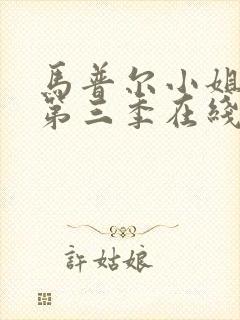 馬普尔小姐
第三季在綫
許姑娘